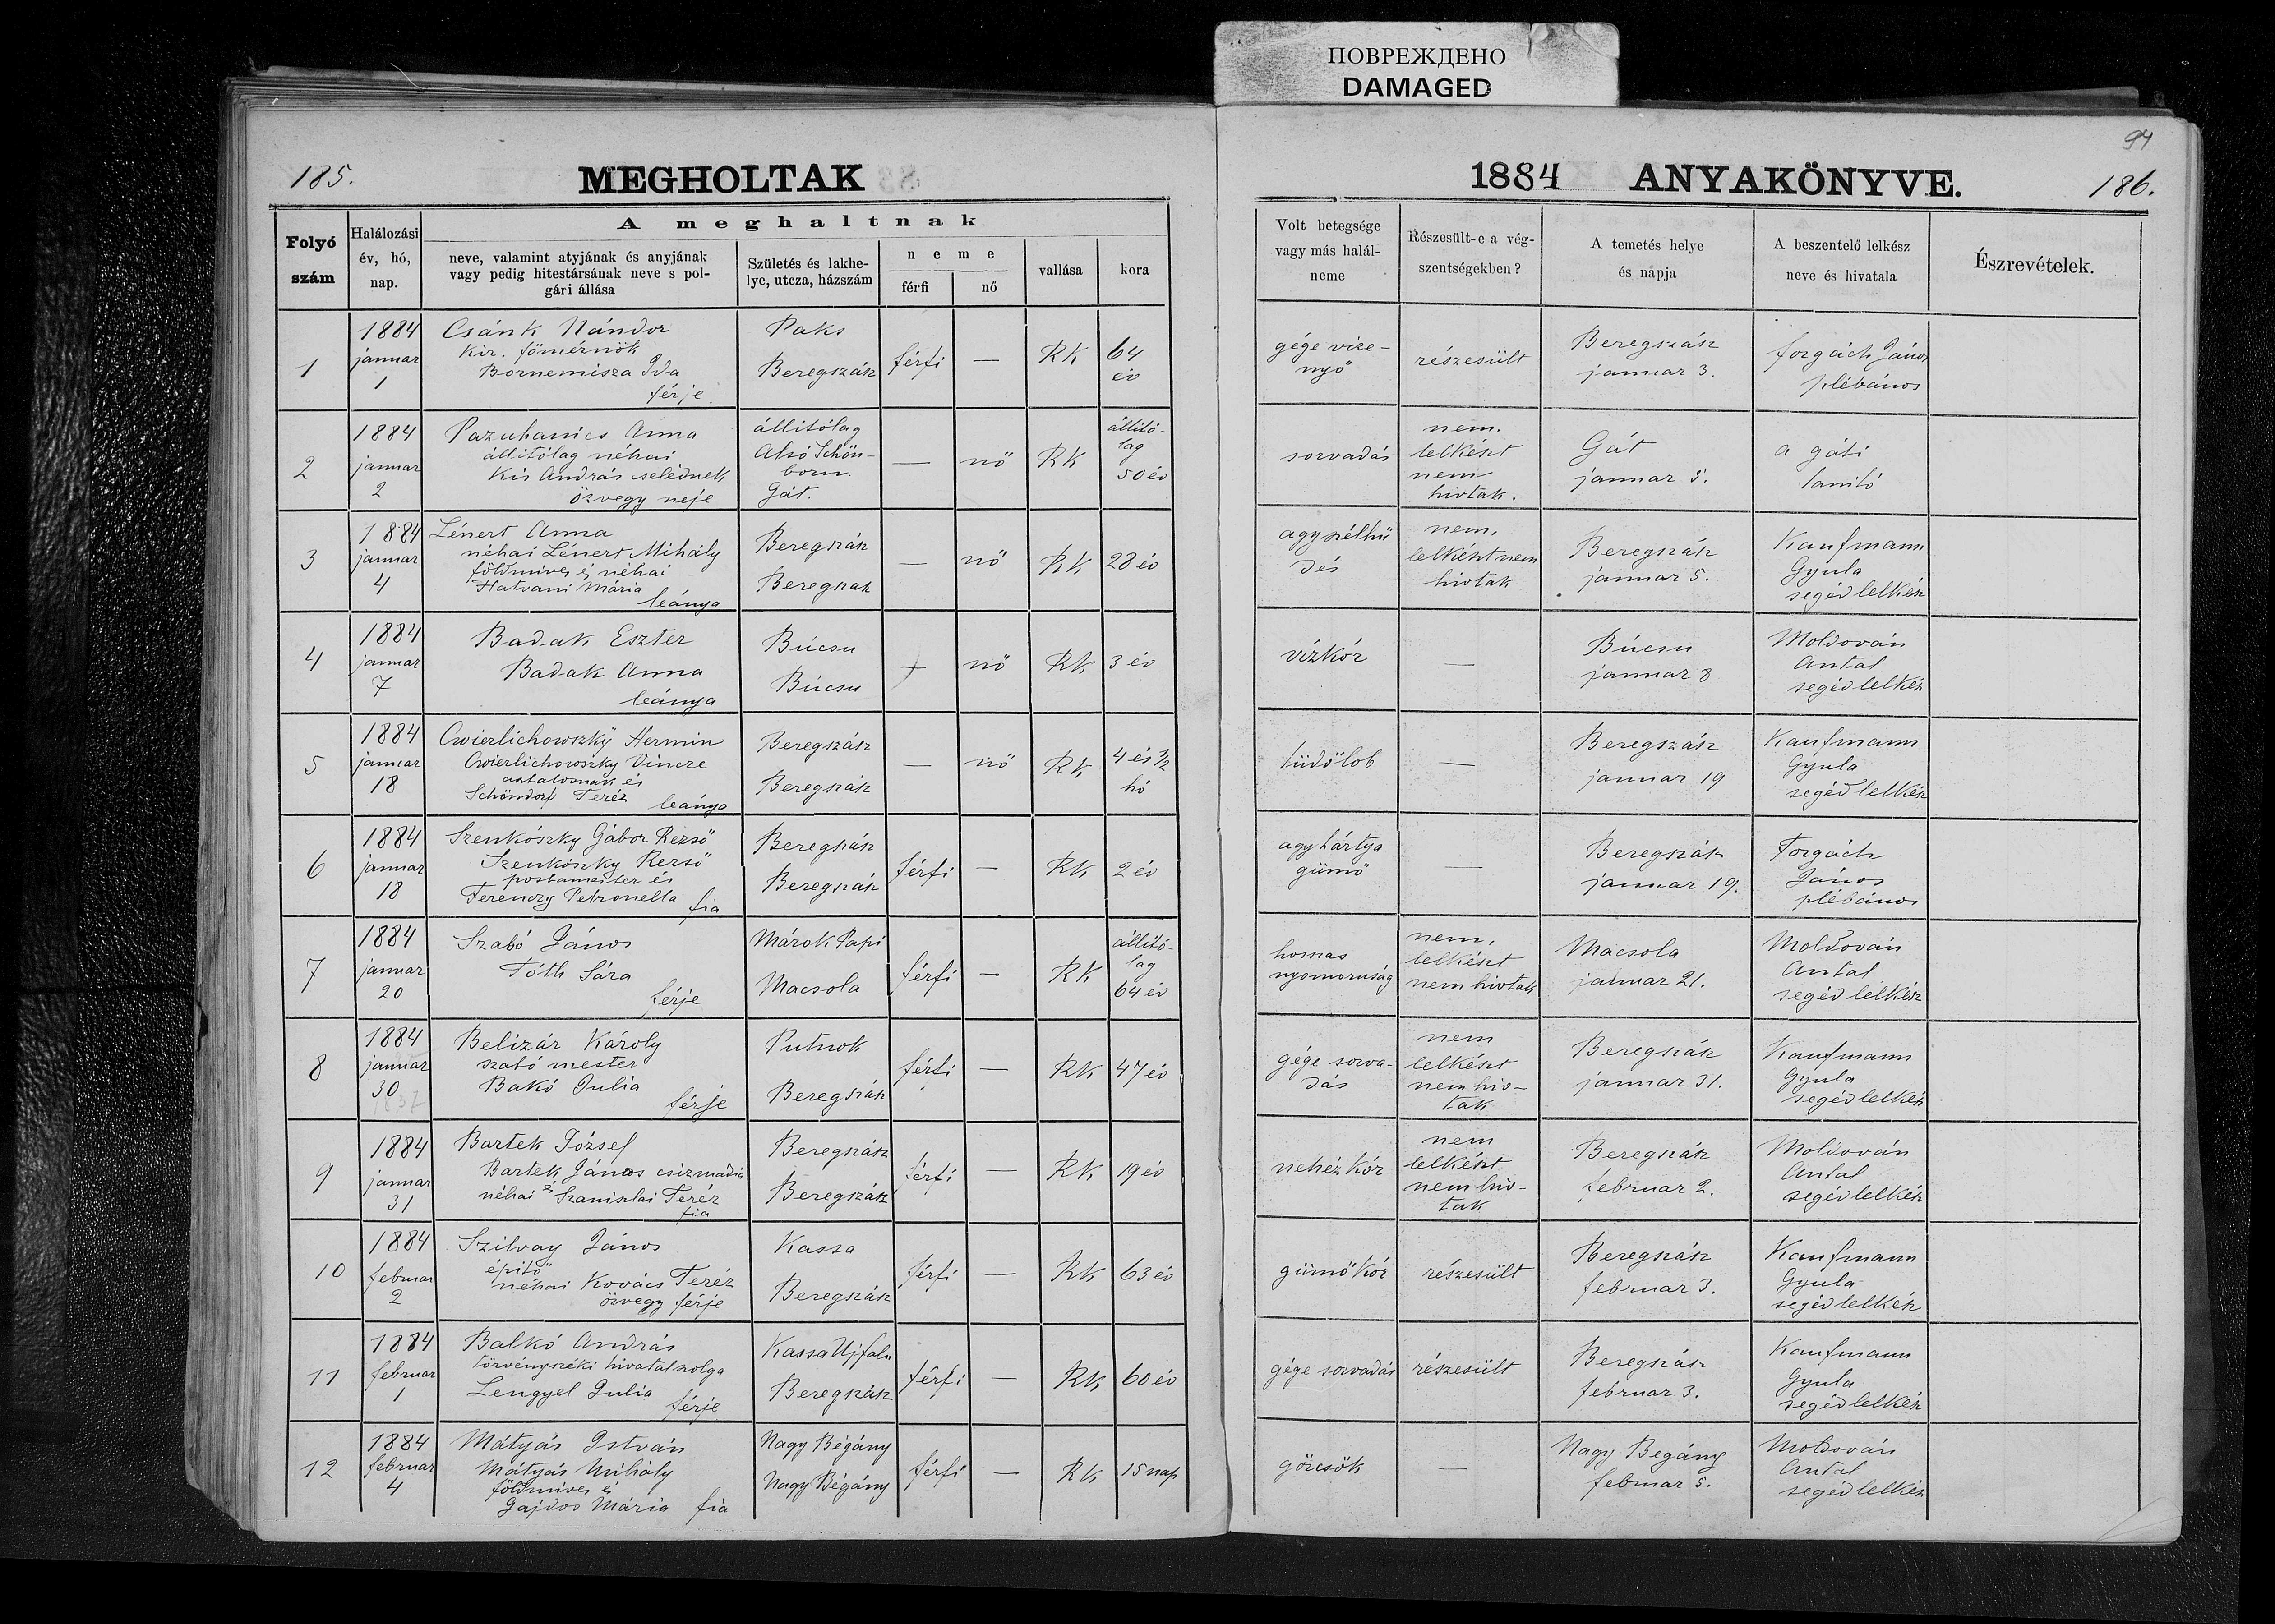 ПОВРЕЖДЕНО
DAMAGED
94
185.
MEGHOLTAK
1884 ANYAKÖNYVE.
186.
Folyó szám
Halálozási év, hó, nap.
A meghaltnak
neve, valamint atyjának és anyjának
vagy pedig hitestársának neve s pol-
gári állása
Születés és lakhe-
lye, utcza, házszám
neme
férfi
nő
vallása
kora
Volt betegsége
vagy más halál-
neme
Részesült-e a vég-
szentségekben?
A temetés helye
és napja
A beszentelő lelkész
neve és hivatala
Észrevételek.
1
1884
januar
1
Csánk Nándor
kir. főmérnök
Bornemisza Ida
férje
Paks
Beregszász
férfi
—
RK
64
év
gége vize-
nyő
részesült
Beregszász
januar 3.
forgách János
plébános
2
1884
januar
2
Pazuhanics Anna
állitólag néhai
Kis András selédnek
özvegy neje
állitólag
Alsó Schön-
born.
Gát.
—
nő
RK
állitó-
lag
50 év
sorvadás
nem.
lelkészt
nem
hivtak.
Gát
januar 5.
a gáti
tanitó
3
1884
januar
4
Lénert Anna
néhai Lénert Mihály
földmives és néhai
Hatvani Mária
leánya
Beregszász
Beregszász
—
nő
RK
28 év
agyszélhü
dés
nem,
lelkészt nem
hivtak
Beregszász
januar 5.
Kaufmann
Gyula
segédlelkész
4
1884
januar
7
Badak Eszter
Badak Anna
leánya
Búcsu
Búcsu
+
nő
RK
3 év
vízkór
—
Búcsu
januar 8
Moldován
Antal
segédlelkész
5
1884
januar
18
Cwierlichowszky Hermin
Cwierlichowszky Vincze
asztalosnak és
Schöndorf Teréz
leánya
Beregszász
Beregszász
—
nő
RK
4 és 1/2
hó
tüdőlob
—
Beregszász
januar 19
Kaufmann
Gyula
segédlelkész
6
1884
januar
18
Szenkószky Gábor Rezső
Szenkószky Rezső
postamester és
Ferenczy Petronella
fia
Beregszász
Beregszász
férfi
—
RK
2 év
agyhártya
gümő
—
Beregszász
januar 19.
Forgách
János
plébános
7
1884
januar
20
Szabó János
Tóth Sára
férje
Márok Papi
Macsola
férfi
—
RK
állitó-
lag
64 év
hosszas
nyomoruság
nem,
lelkészt
nem hivtak
Macsola
januar 21.
Moldován
Antal
segédlelkész
8
1884
januar
30
Belizár Károly
szabó mester
Bakó Julia
férje
Putnok
Beregszász
férfi
—
RK
47 év
gége sorva-
dás
nem
lelkészt
nem hiv-
tak
Beregszász
januar 31.
Kaufmann
Gyula
segédlelkész
9
1884
januar
31
Bartek József
Bartek János csizmadia
néhai és Szaniszlai Teréz
fia
Beregszász
Beregszász
férfi
—
RK
19 év
nehéz kór
nem
lelkészt
nem hiv-
tak
Beregszász
februar 2.
Moldován
Antal
segédlelkész
10
1884
februar
2
Szilvay János
épitő
néhai Kovács Teréz
özvegy férje
Kassa
Beregszász
férfi
—
RK
63 év
gümőkór
részesült
Beregszász
februar 3.
Kaufmann
Gyula
segédlelkész
11
1884
februar
1
Balkó András
törvényszéki hivatalszolga
Lengyel Julia
férje
Kassa Ujfalu
Beregszász
férfi
—
RK
60 év
gége sorvadás
részesült
Beregszász
februar 3.
Kaufmann
Gyula
segédlelkész
12
1884
februar
4
Mátyás István
Mátyás Mihály
földmives és
Gajdos Mária
fia
Nagy Bégány
Nagy Bégány
férfi
—
RK
15 nap
görcsök
—
Nagy Begány
februar 5.
Moldován
Antal
segédlelkész